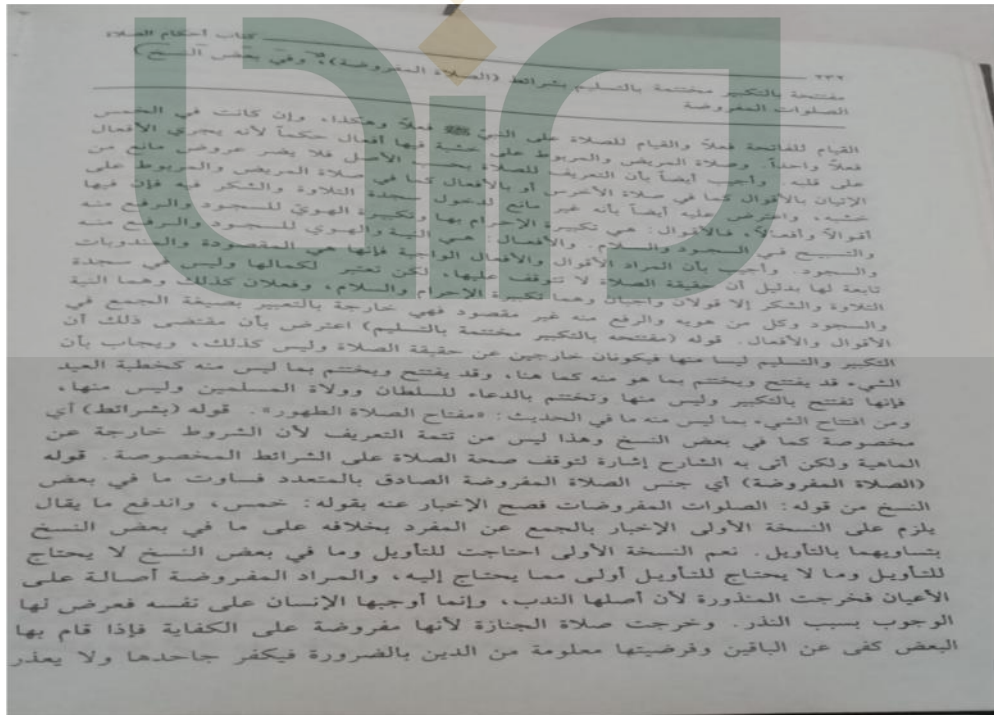 كتاب أحكام الصلاة
٢٣٢
مفتتحة بالتكبير مختتمة بالتسليم بشرائط (الصلاة المفروضة)، وفي بعض النسخ)
الصلوات المفروضة
القيام للفاتحة فعلاً والقيام للصلاة على النبي ﷺ فعلاً وهكذا، وإن كانت في الخمس
فعلاً واحداً. وصلاة المريض والمربوط على خشبة فيها أفعال حكماً لأنه يجري الأفعال
على قلبه. وأجيب أيضاً بأن التعريف للصلاة بحسب الأصل فلا يضر عروض مانع من
الإتيان بالأقوال كما في صلاة الأخرس أو بالأفعال كما في صلاة المريض والمربوط على
خشبه، واعترض عليه أيضاً بأنه غير مانع لدخول سجدة التلاوة والشكر فيه فإن فيها
أقوالاً وأفعالاً، فالأقوال: هي تكبيرة الإحرام بها وتكبيرة الهوي للسجود والرفع منه
والتسبيح في السجود والسلام. والأفعال: هي النية والهوي للسجود والرفع منه
والسجود. وأجيب بأن المراد الأقوال والأفعال الواجبة فإنها هي المقصودة والمندوبات
تابعة لها بدليل أن حقيقة الصلاة لا تتوقف عليها، لكن تعتبر لكمالها وليس في سجدة
التلاوة والشكر إلا قولان واجبان وهما تكبيرة الإحرام والسلام، وفعلان كذلك وهما النية
والسجود وكل من هويه والرفع منه غير مقصود فهي خارجة بالتعبير بصيغة الجمع في
الأقوال والأفعال. قوله (مفتتحه بالتكبير مختتمة بالتسليم) اعترض بأن مقتضى ذلك أن
التكبير والتسليم ليسا منها فيكونان خارجين عن حقيقة الصلاة وليس كذلك، ويجاب بأن
الشيء قد يفتتح ويختتم بما هو منه كما هنا، وقد يفتتح ويختتم بما ليس منه كخطبة العيد
فإنها تفتتح بالتكبير وليس منها وتختتم بالدعاء للسلطان وولاة المسلمين وليس منها،
ومن افتتاح الشيء بما ليس منه ما في الحديث: «مفتاح الصلاة الطهور». قوله (بشرائط) أي
مخصوصة كما في بعض النسخ وهذا ليس من تتمة التعريف لأن الشروط خارجة عن
الماهية ولكن أتى به الشارح إشارة لتوقف صحة الصلاة على الشرائط المخصوصة. قوله
(الصلاة المفروضة) أي جنس الصلاة المفروضة الصادق بالمتعدد فساوت ما في بعض
النسخ من قوله: الصلوات المفروضات فصح الإخبار عنه بقوله: خمس، واندفع ما يقال
يلزم على النسخة الأولى الإخبار بالجمع عن المفرد بخلافه على ما في بعض النسخ
بتساويهما بالتأويل. نعم النسخة الأولى احتاجت للتأويل وما في بعض النسخ لا يحتاج
للتأويل وما لا يحتاج للتأويل أولى مما يحتاج إليه، والمراد المفروضة أصالة على
الأعيان فخرجت المنذورة لأن أصلها الندب، وإنما أوجبها الإنسان على نفسه فعرض لها
الوجوب بسبب النذر. وخرجت صلاة الجنازة لأنها مفروضة على الكفاية فإذا قام بها
البعض كفى عن الباقين وفرضيتها معلومة من الدين بالضرورة فيكفر جاحدها ولا يعذر